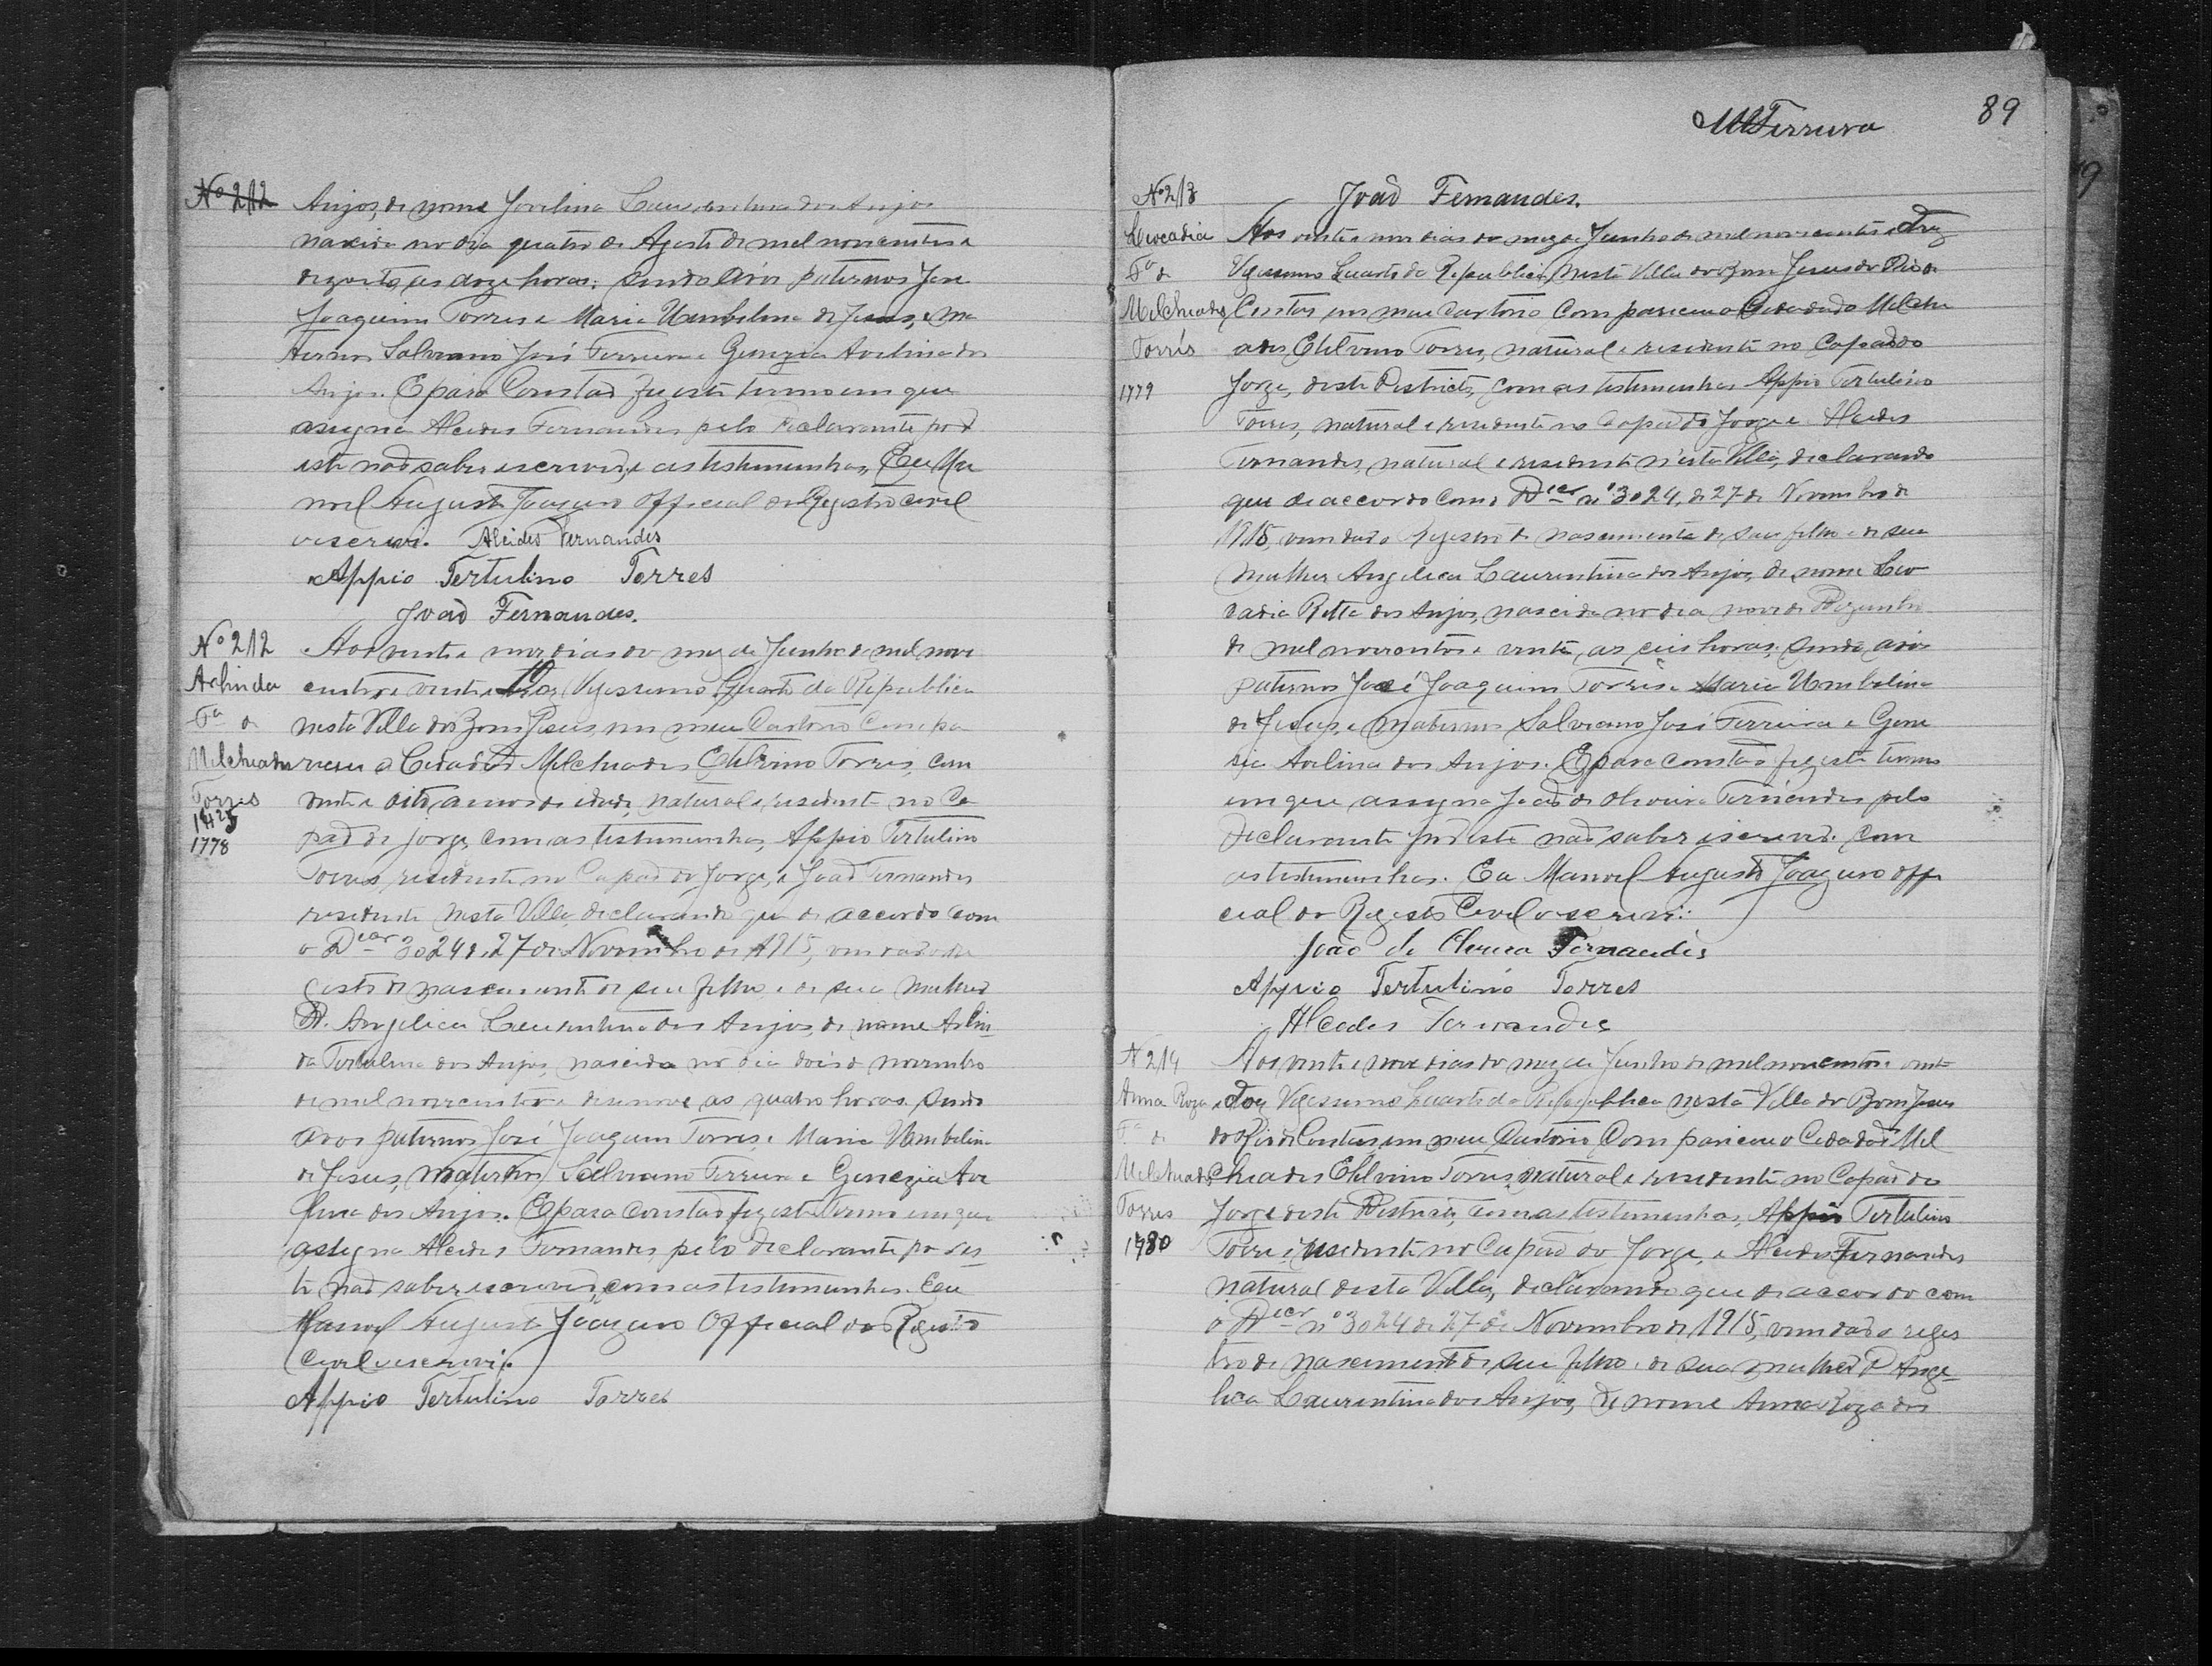 Nº 212 Anjos, de nome Jovelina Laurentina dos Anjos
nascida no dia quatro de Agosto de mil novecentos e
dezoito, as doze horas; sendo avós paternos José
Joaquim Torres e Maria Umbelina de Jesus, e ma
ternos Salviano José Ferreira e Genezia Avelina dos
Anjos. E para constar fiz este termo em que
assigna Alcides Fernandes pelo declarante por
este não saber escrever, e as testemunhas, Eu Ma
noel Augusto Official do Registro Civil
o escrevi. Alcides Fernandes
Appio Tertulino Torres
João Fernandes.
Nº 212
Arlinda
Fª de
Melchiades
Torres
1778
Aos vinte e nove dias do mez de Junho de mil nove
centos e vinte e Vigessimo Quarto da Republica
nesta Villa do Bom Jesus, em meu Cartorio Compa
receu o Cidadão Melchiades Etelvino Torres, com
vinte e oito annos de idade, natural e residente no Ca
pão do Jorge, com as testemunhas, Appio Tertulino
Torres, residente no Capão do Jorge, e João Fernandes
residente nesta Villa, declarando que de accordo com
o Decr 3024 de 27 de Novembro de 1915, vem dar o re
gisto de nascimento de seu filho e de sua mulher
D. Angelica Laurentina dos Anjos, de nome Arlin
da Tertulina dos Anjos, nascida no dia dois de novembro
de mil novecentos e desenove as quatro horas. Sendo
avos paternos José Joaquim Torres e Maria Umbelina
de Jesus, maternos Salviano Ferreira e Genezia Ave
lina dos Anjos. E para constar fiz este termo em que
assigna Alcides Fernandes pelo declarante por es
te não saber escrever, com as testemunhas. Eu
Manoel Augusto Official do Registo
Civil o escrevi.
Appio Tertulino Torres
89
MFerreira
Nº 213
Leocadia
Fª de
Melchiades
Torres
1779
João Fernandes.
Aos vinte e nove dias do mez de Junho de mil novecentos e
Vigessimo Quarto da Republica, nesta Villa do Bom Jesus do Rio de
Contas em meu Cartorio Compareceu o Cidadão Melchi
ades Etelvino Torres, natural e residente no Capão do
Jorge, deste Districto, com as testemunhas Appio Tertulino
Torres, natural e residente no Capão do Jorge e Alcides
Fernandes, natural e residente n'esta Villa, declarando
que de accordo com o Decr nº 3024, de 27 de Novembro de
1915, vem dar o registro de nascimento de seu filho e de sua
mulher Angelica Laurentina dos Anjos, de nome Leo
cadia Ritta dos Anjos, nascida no dia nove de Dezembro
de mil novecentos e vinte, as seis horas, sendo avós
paternos José Joaquim Torres e Maria Umbelina
de Jesus, e maternos Salviano José Ferreira e Gene
zia Avelina dos Anjos. E para constar fiz este termo
em que assigna João de Oliveira Fernandes pelo
declarante por este não saber escrever. Com
as testemunhas. Eu Manoel Augusto offi
cial do Registo Civil o escrevi.
João de Oliveira Fernandes
Appio Tertulino Torres
Alcedes Fernandes
N 214
Anna Roza
Fª de
Melchiades
Torres
1780
Aos vinte e nove dias do mez de Junho de mil novecentos e vinte
e Vigessimo Quarto da Republica nesta Villa do Bom Jesus
do Rio de Contas em meu Cartorio Compareceu o Cidadão Mel
chiades Etelvino Torres, natural e residente no Capão do
Jorge deste Districto, com as testemunhas, Appio Tertulino
Torres, residente no Capão do Jorge, e Alcides Fernandes
natural desta Villa, declarando que de accordo com
o Decr nº 3024 de 27 de Novembro de 1915, vem dar o regis
tro de nascimento de seu filho e de sua mulher D Ange-
lica Laurentina dos Anjos, de nome Anna Roza dos